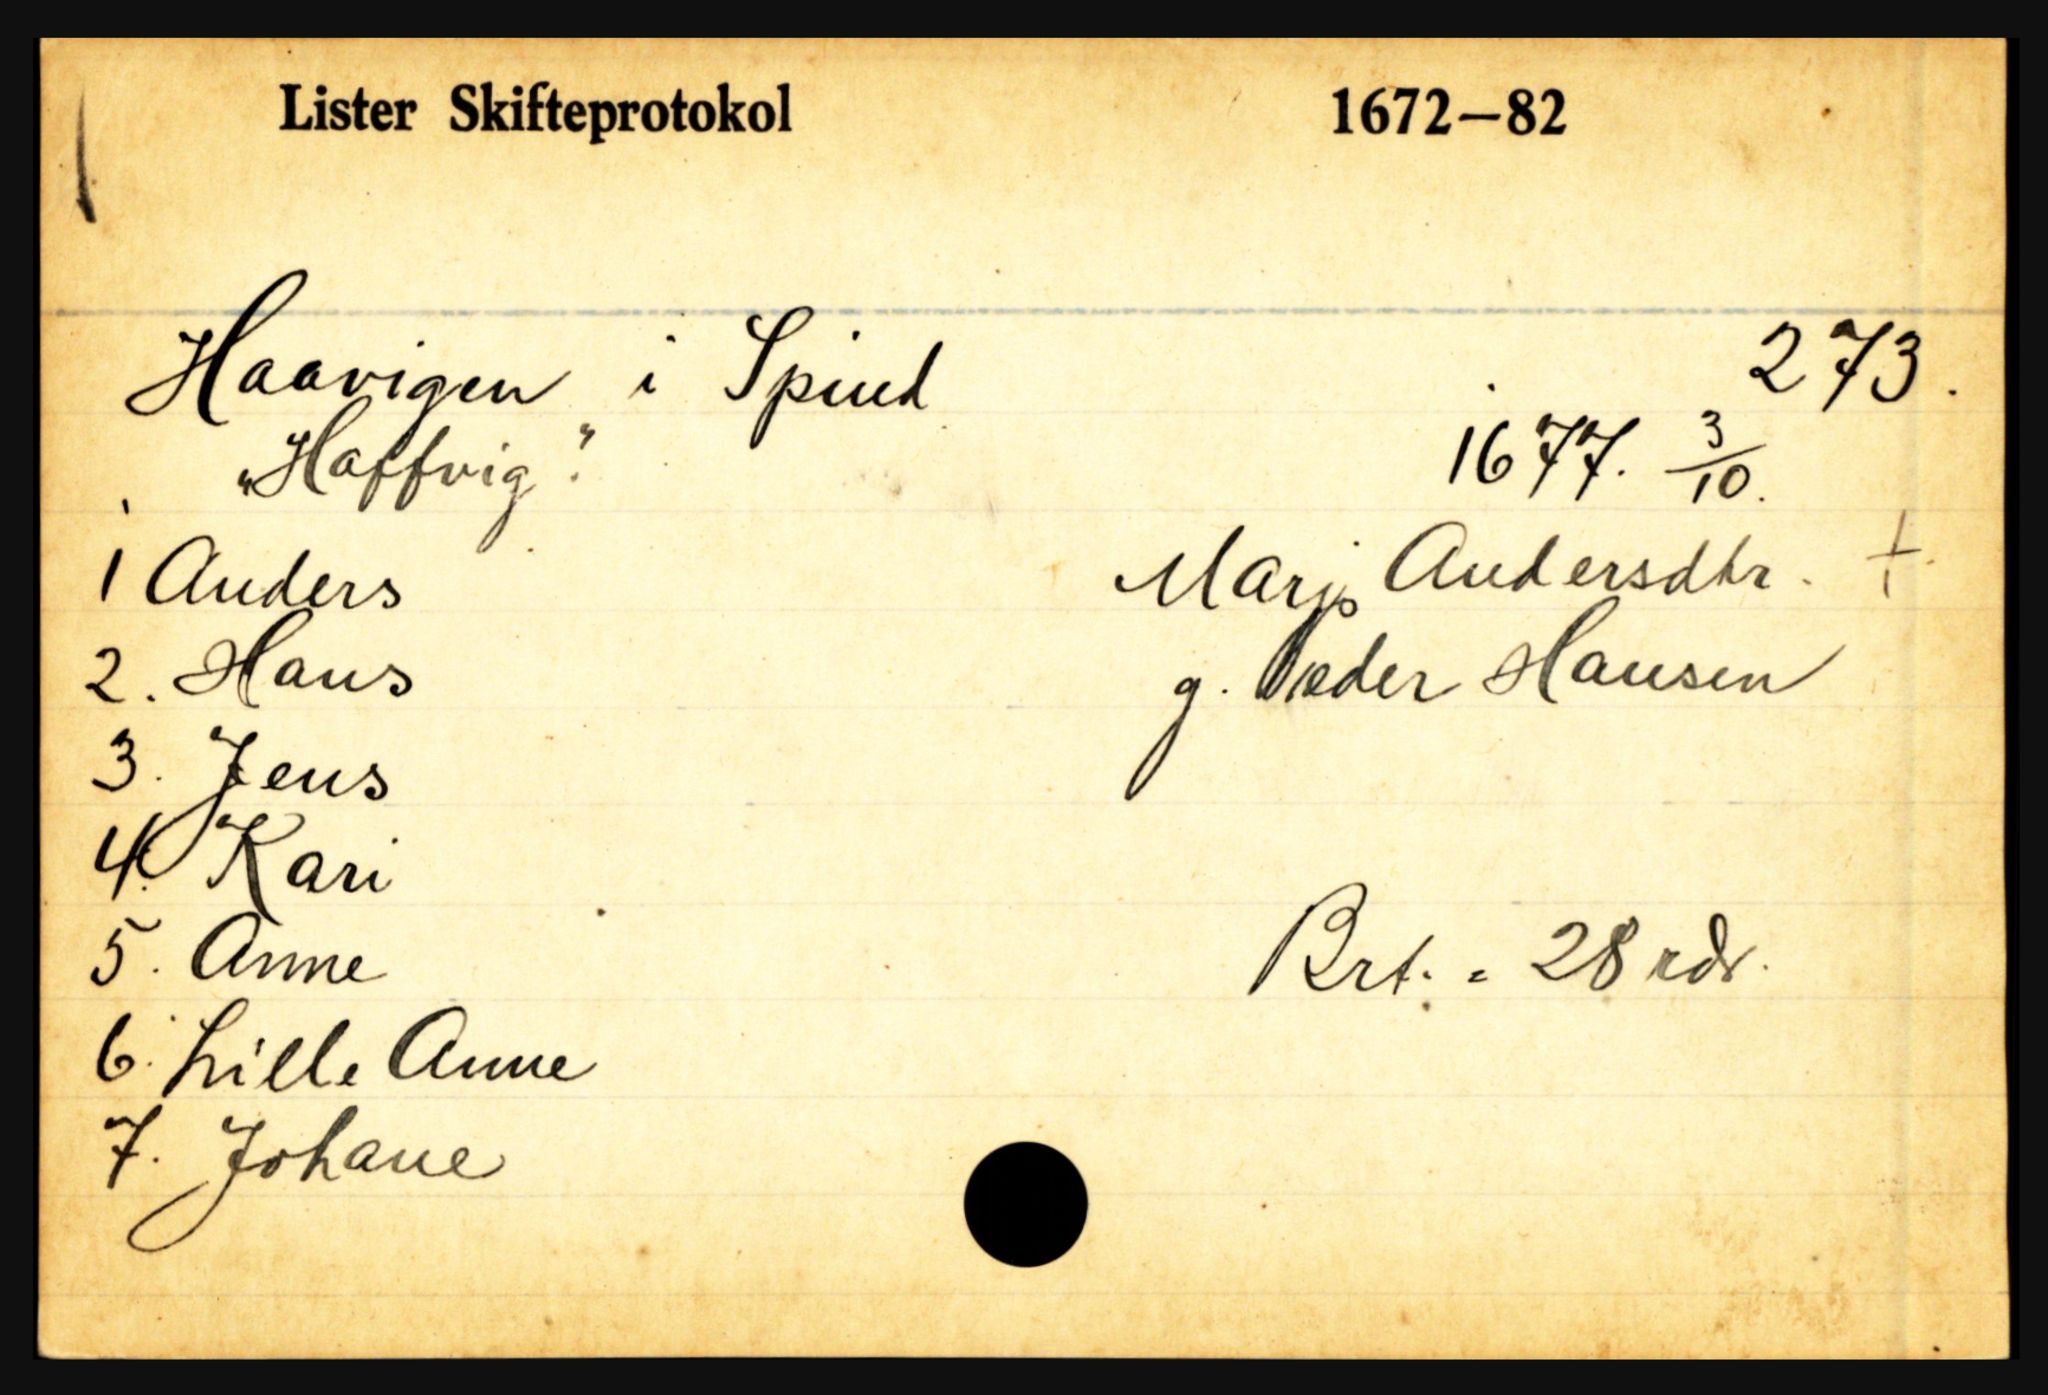 Lister Skifteprotokol 1672–82
Haavigen i Spind 273.
"Haffvig". 1677. 3/10.
1 Anders Marj. Andersdtr. +
2. Hans g. Peder Hansen
3. Jens
4. Kari
5. Anne Brt. = 28 rdr.
6. Lille Anne
7. Johane